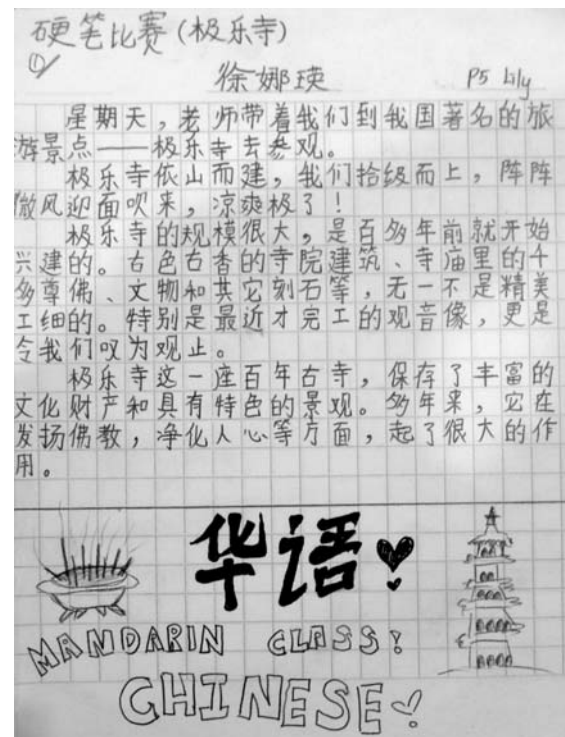 硬笔比赛(极乐寺)
①
徐娜瑛 P5 Lily
星期天，老师带着我们到我国著名的旅
游景点——极乐寺去参观。
极乐寺依山而建，我们拾级而上，阵阵
微风迎面吹来，凉爽极了！
极乐寺的规模很大，是百多年前就开始
兴建的。古色古香的寺院建筑、寺庙里的千
多尊佛、文物和其它刻石等，无一不是精美
工细的。特别是最近才完工的观音像，更是
令我们叹为观止。
极乐寺这一座百年古寺，保存了丰富的
文化财产和具有特色的景观。多年来，它在
发扬佛教，净化人心等方面，起了很大的作
用。
华语
MANDARIN CLASS!
CHINESE